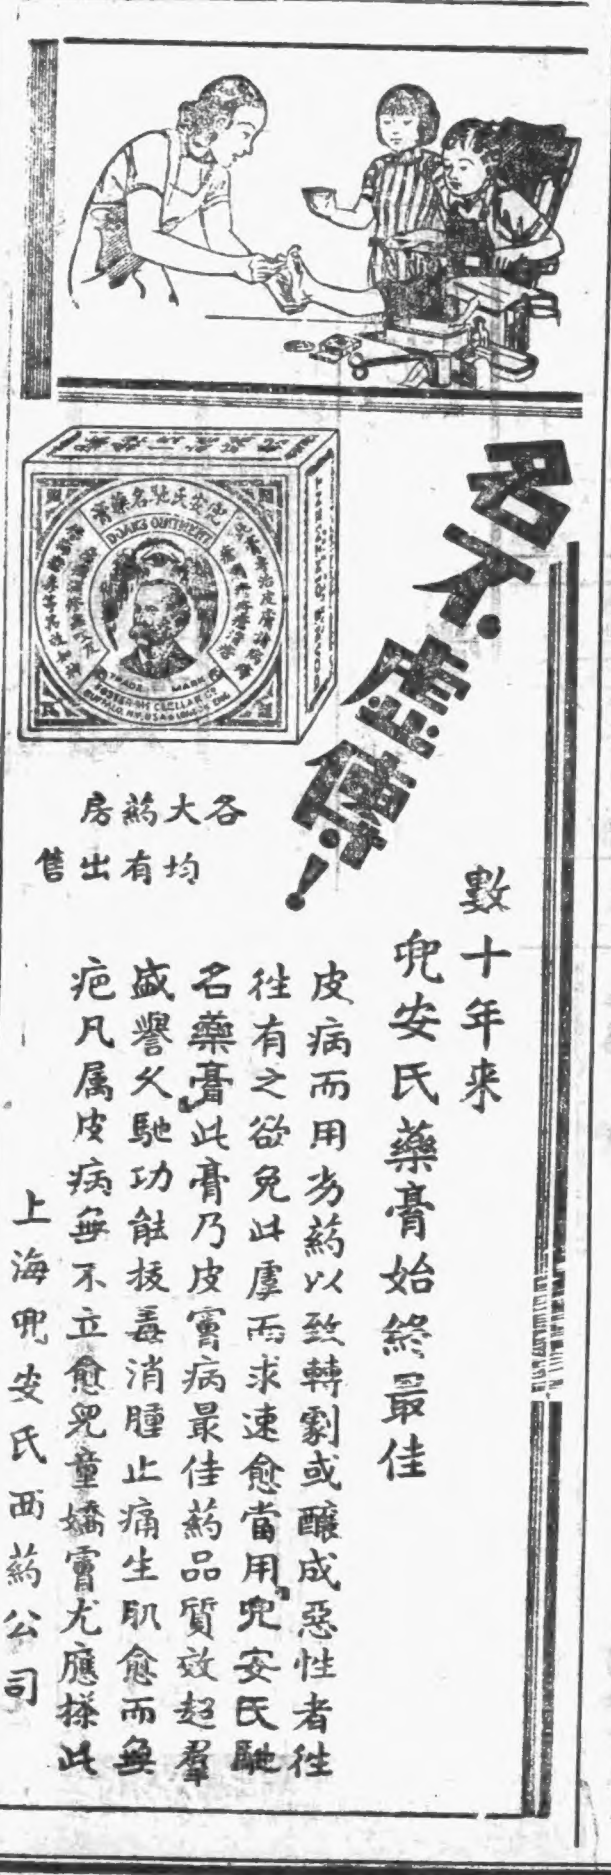 名不虛傳！
數十年来
兜安氏藥膏始終最佳
皮病而用劣葯以致轉劇或釀成惡性者往
往有之欲免此虞而求速愈當用『兜安氏馳
名藥膏』此膏乃皮膚病最佳葯品質效超羣
盛譽久馳功能拔毒消腫止痛生肌愈而無
疤凡属皮病無不立愈兒童嬌膚尤應搽此
上海兜安氏西葯公司
各大葯房
均有出售
兜安氏馳名藥膏
DOAN'S OINTMENT
TRADE MARK
FOSTER-McCLELLAN CO
BUFFALO, N.Y., U.S.A. & LONDON, ENG